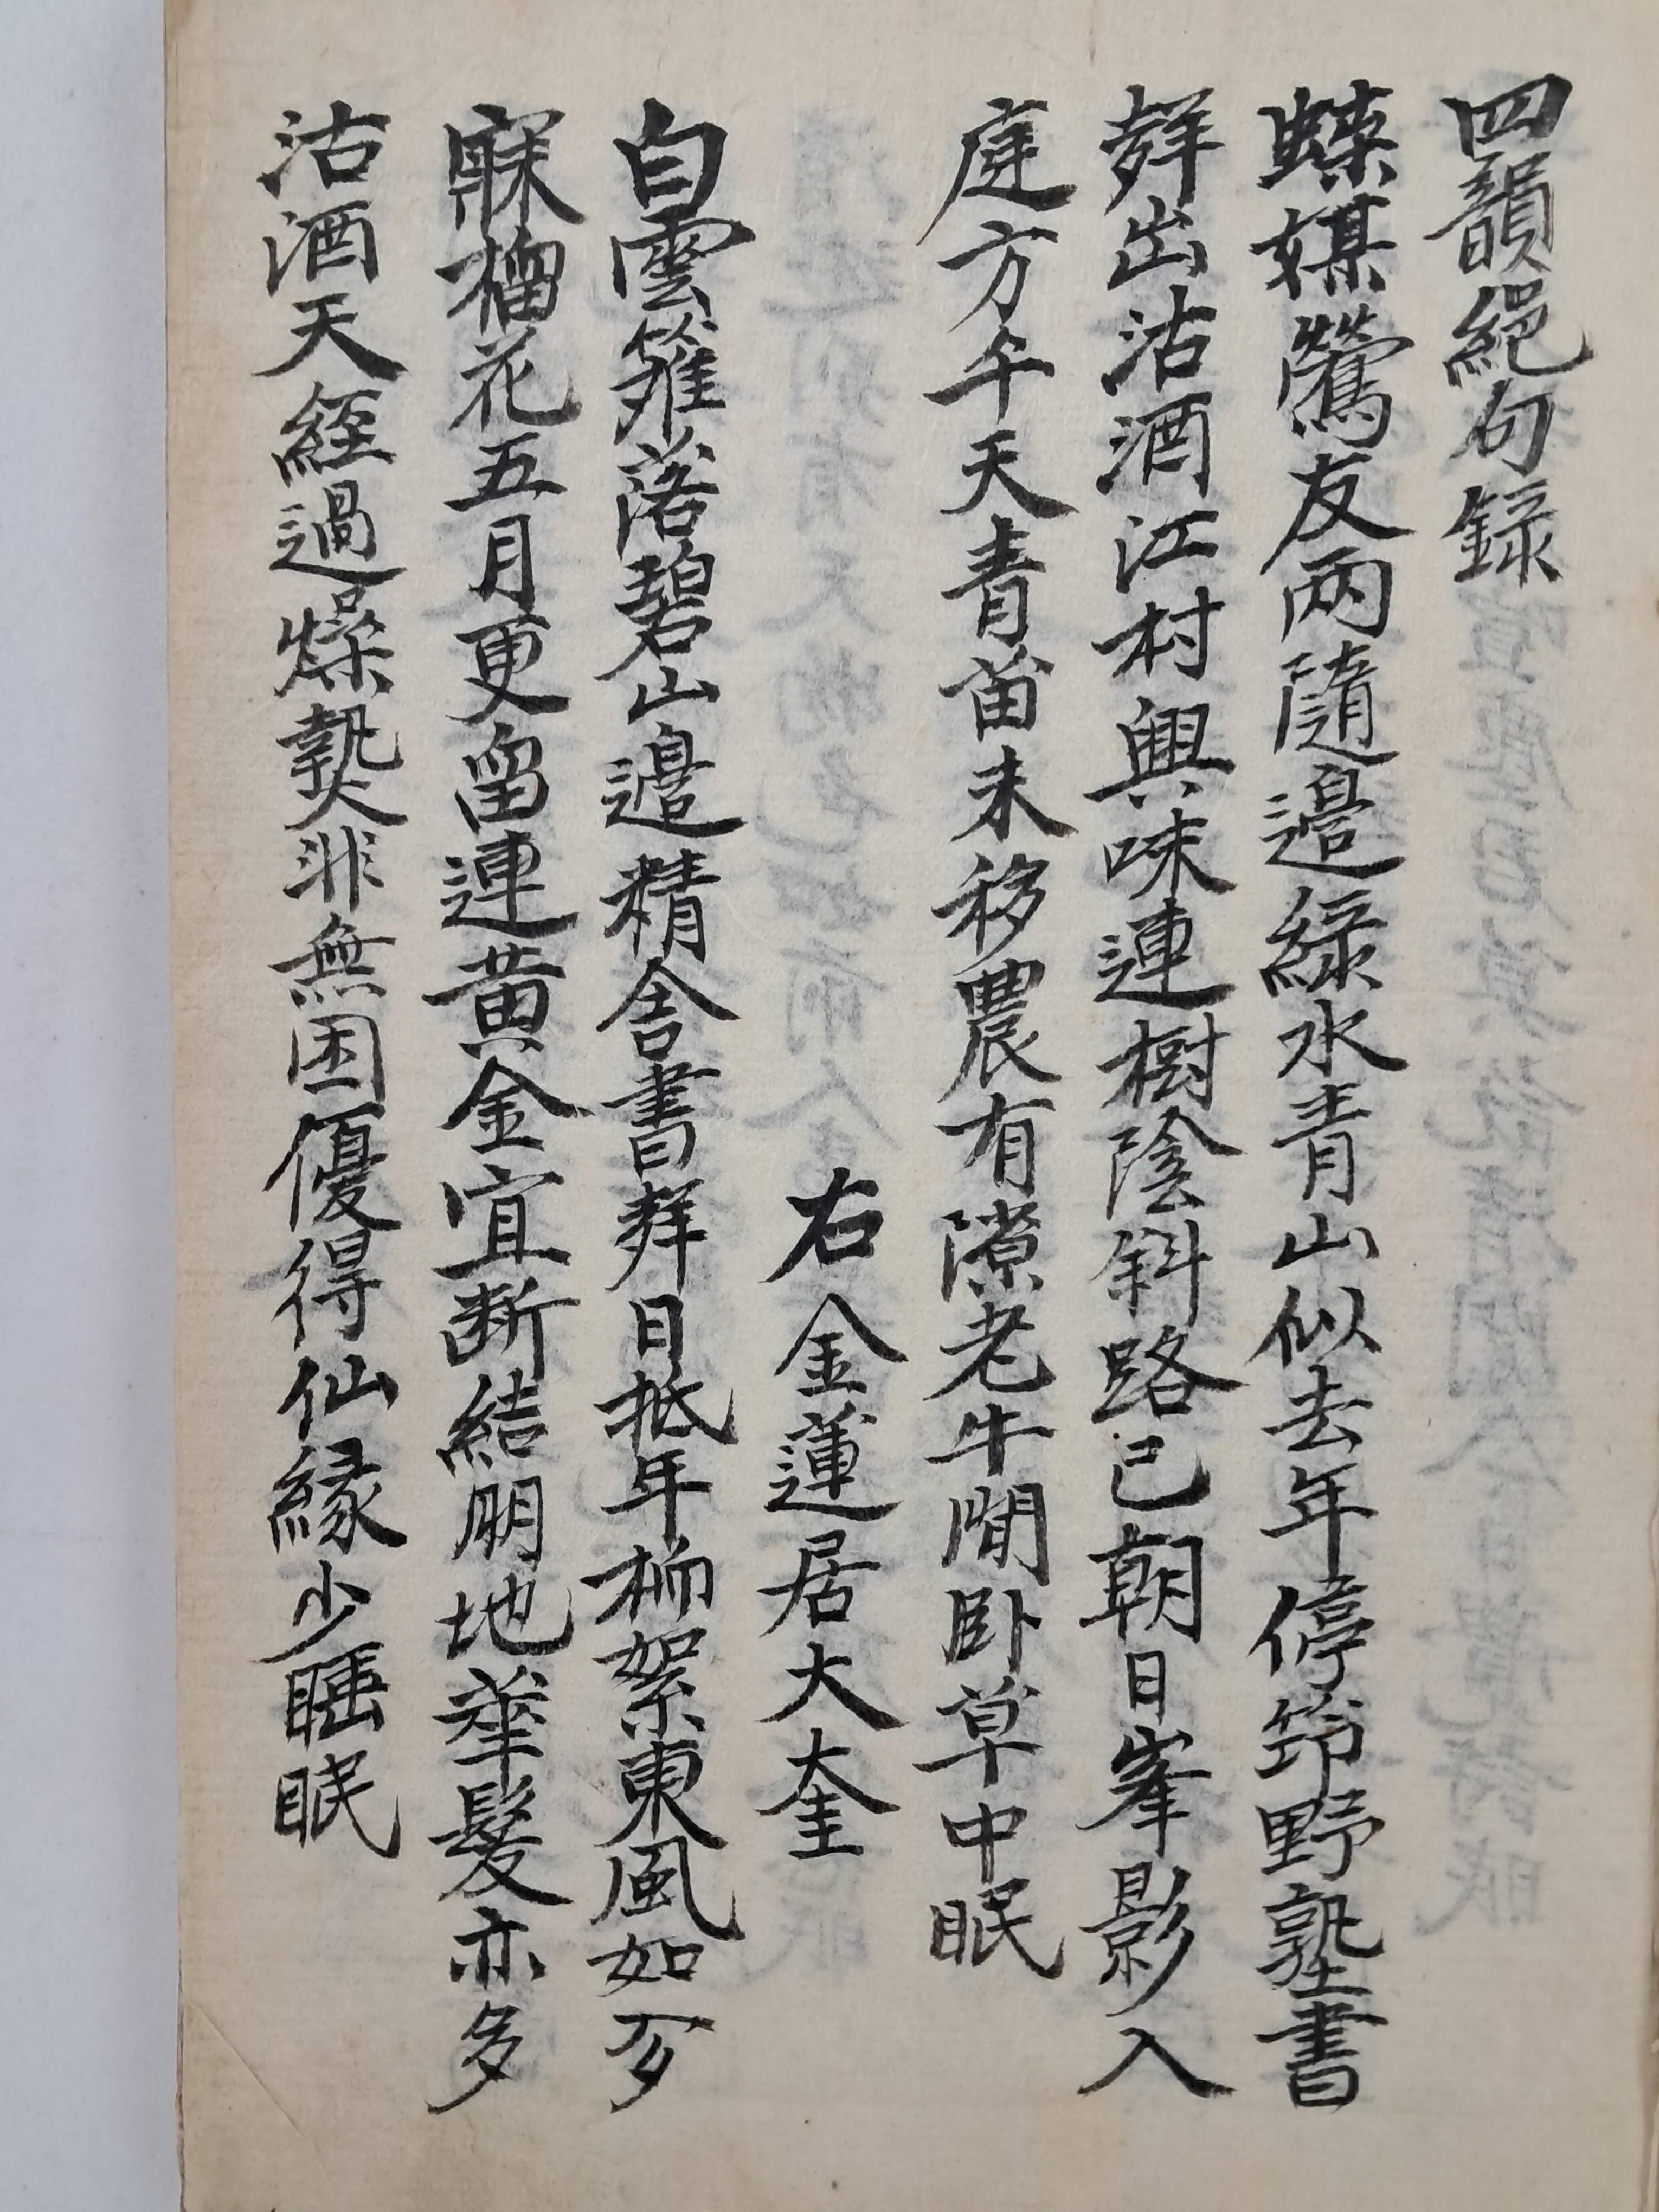 四韻絕句録
蝶媒鶯友兩隨邉綠水青山似去年停筇野塾書
聲出沽酒江村興味連樹陰斜路已朝日峯影入
庭方午天青苗未移農有隙老牛閒卧草中眠
右金蓮居大奎
白雲籬落碧山邉精舍書聲日抵年柳絮東風如
寐榴花五月更留連黄金宜断結朋地華髮亦多
沽酒天經過燥𤍠非無困優得仙緣少睡眠